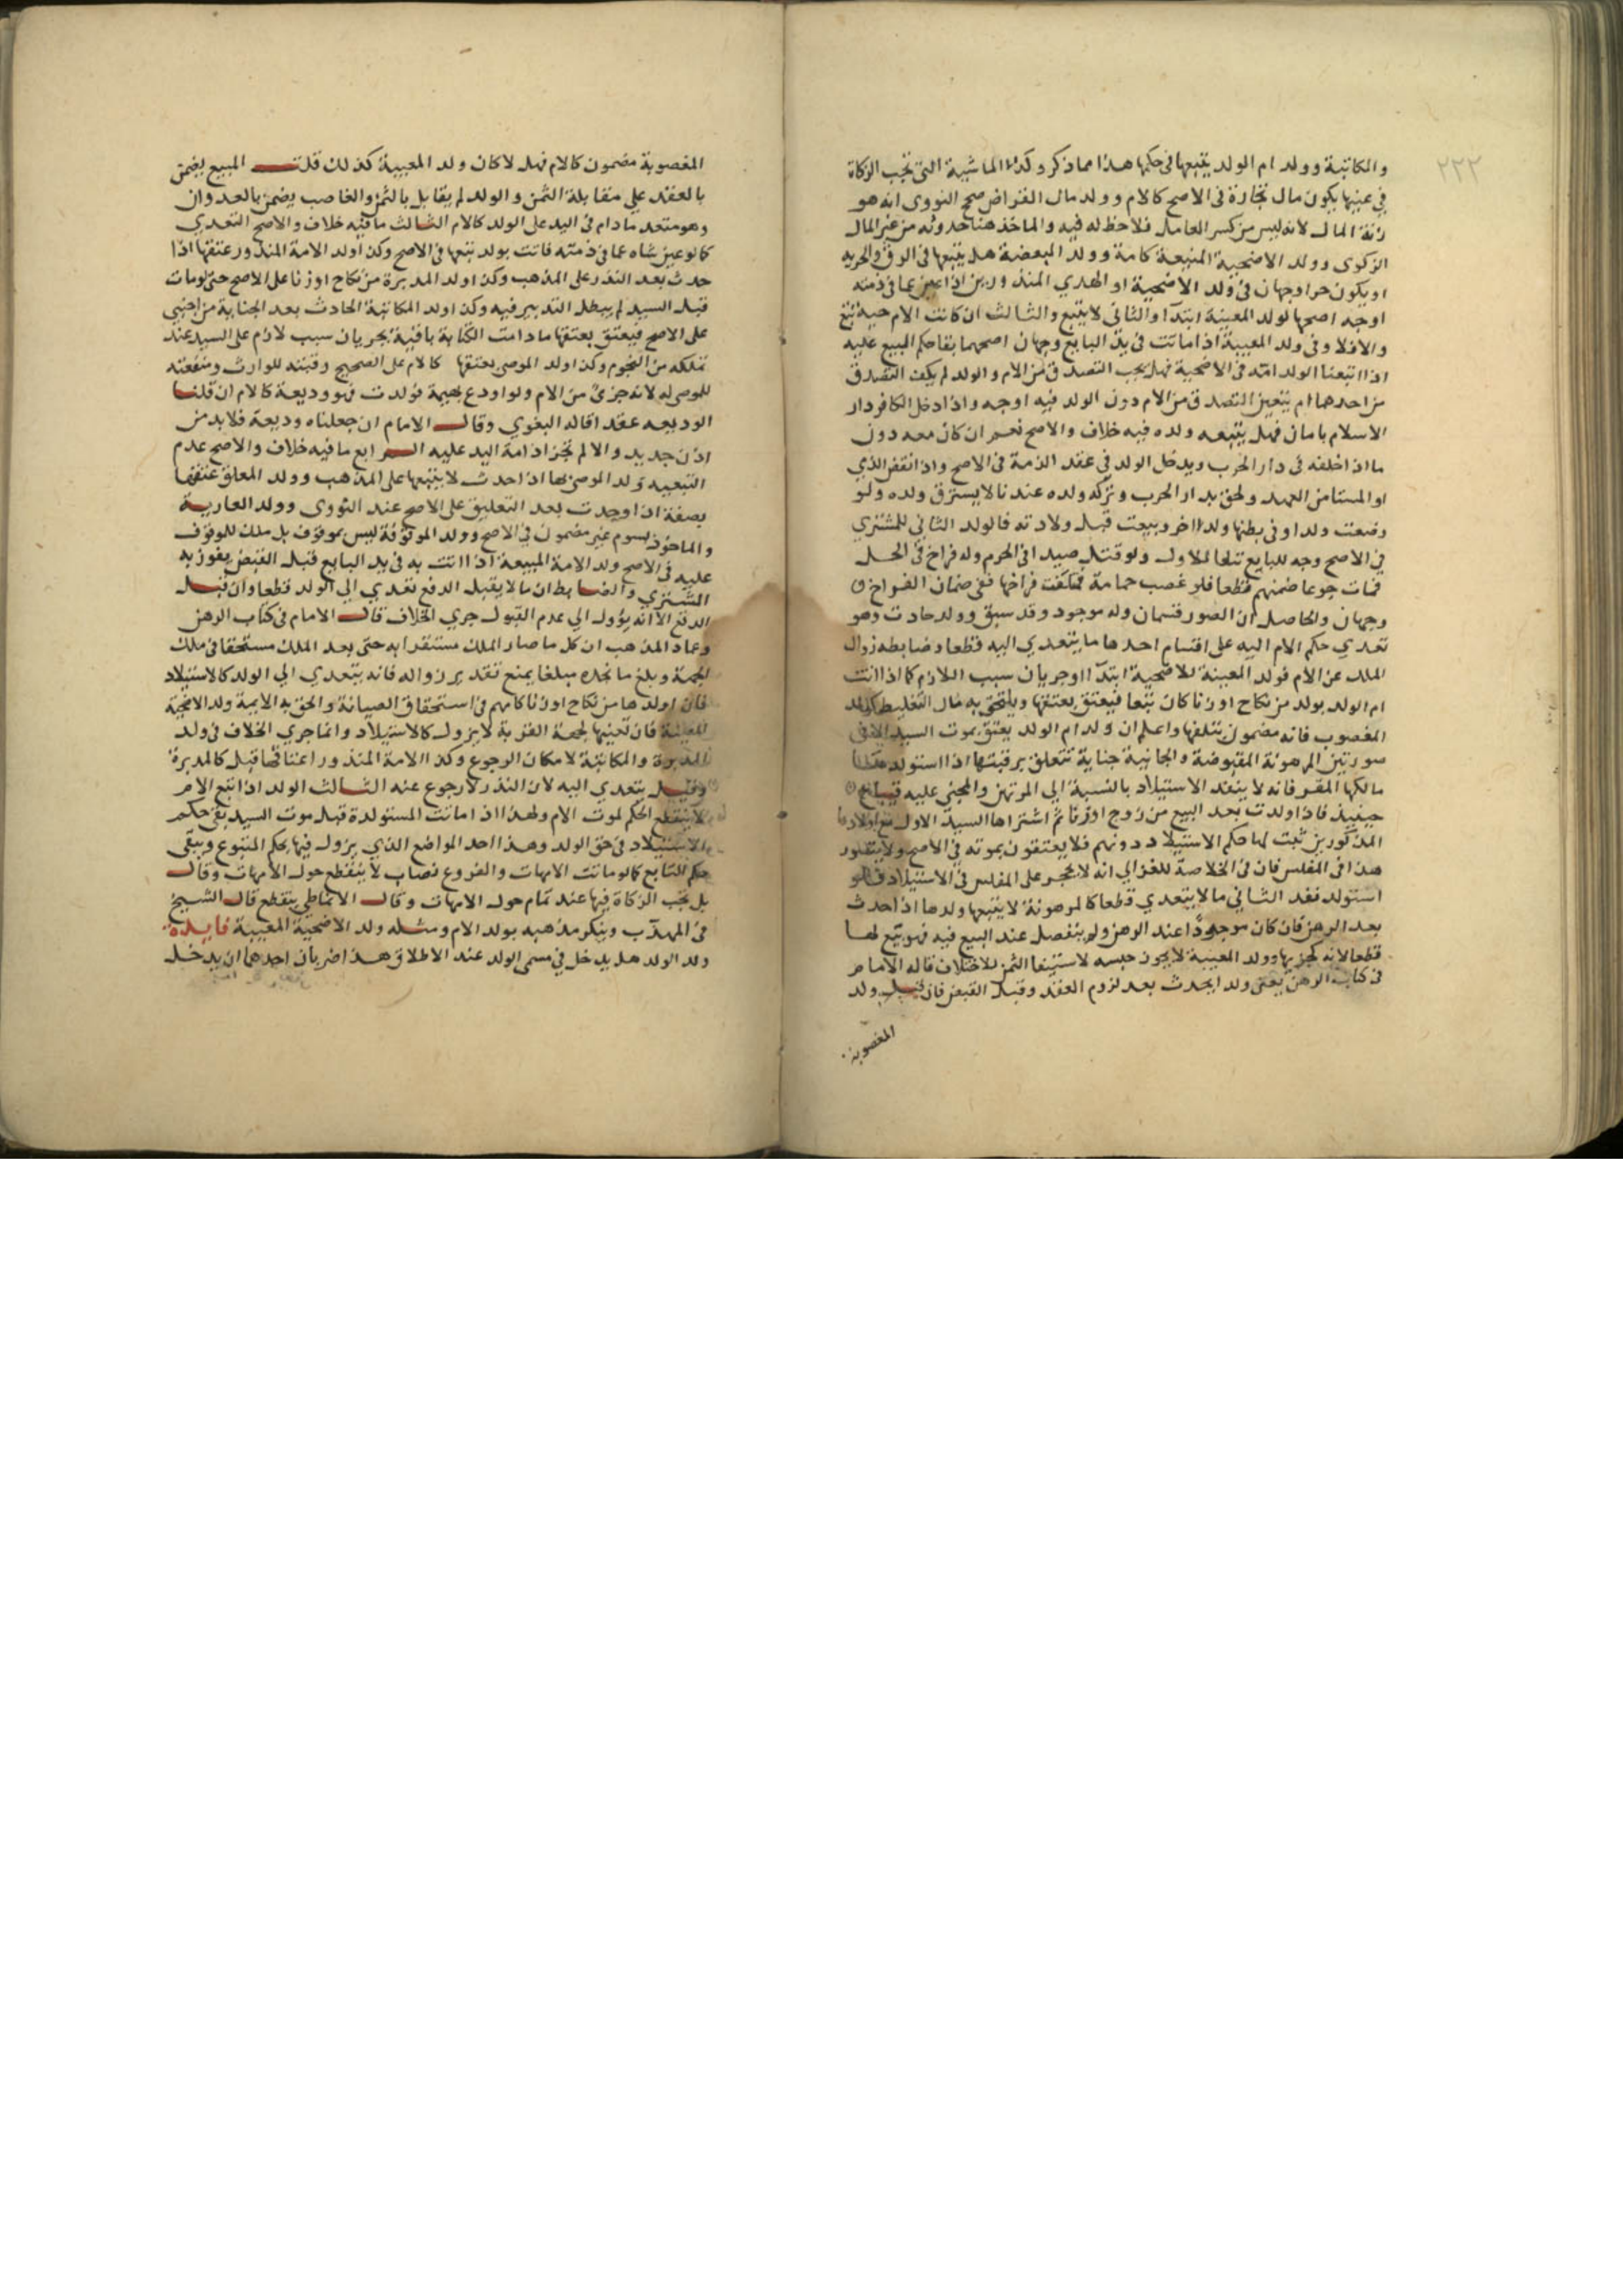 ٢٢٢
والمكاتبة وولد ام الولد يتبعها في حكمها هذا مما ذكر وكذا الماشية التي تجب الزكاة
في عينها يكون مال تجارة في الاصح كالام وولد مال القراض صحح النووى انه هو
المال لانه ليس من كسر العامل فلا حظ له فيه والماخذ هنا حدوثه من غير المال
الزكوى وولد الاضحية المتبعة كامة وولد المبعضة هل يتبعها في الرق والحرية
او يكون حرا وجهان في ولد الاضحية او الهدي المنذورين اذا عين عما في ذمته
اوجه اصحها كولد المعينة ابتدآ والثاني لا يتبع والثالث ان كانت الام حية تبع
والا فلا وفي ولد المعيبة اذا ماتت في يد البايع وجهان اصحهما بقا حكم المبيع عليه
اذا اتبعنا الولد امه في الاضحية فهل يجب التصدق من الام والولد لم يكف التصدق
من احدهما ام يتعين التصدق من الام دون الولد فيه اوجه واذا دخل الكافر دار
الاسلام بامان فهل يتبعه ولده فيه خلاف والاصح نعم ان كان معه دون
ما اذا خلفه في دار الحرب ويدخل الولد في عقد الذمة في الاصح واذا نقض الذمي
او المستامن العهد ولحق بدار الحرب وترك ولده عندنا لا يسترق ولده ولو
وضعت ولدا وفي بطنها ولد اخر وبيعت قبل ولادته فالولد الثاني للمشتري
في الاصح وجه للبايع تبعا للاول ولو قتل صيدا في الحرم وله فراخ في الحل
فمات جوعا ضمنهم قطعا فلو غصب حمامة فهلكت فراخها ففي ضمان الفراخ
وجهان والحاصل ان الصور قسمان ولد موجود وقد سبق وولد حادث وهو
تعدي حكم الام اليه على اقسام احدها ما يتعدي اليه قطعا وضابطه زوال
الملك عن الام فولد المعينة للاضحية ابتدآ اوجريان سبب اللازم كما اذا اتت
ام الولد بولد من نكاح او زنا كان تبعا فيعتق بعتقها ويلتحق به مال التغليظ كولد
المغصوب فانه مضمون بتلفها واعلم ان ولد ام الولد يعتق بموت السيد الا في
صورتين المرهونة المقبوضة والجانية جناية تتعلق برقبتها اذا استولدهما
مالكها المقر فانه لا ينفذ الاستيلاد بالنسبة الى المرتهن والمجني عليه
حينيذ فاذا ولدت بعد البيع من زوج او زنا ثم اشتراها السيد الاول مع اولادها
المذكورين ثبت لها حكم الاستيلاد دونهم فلا يعتقون بموته في الاصح ولا يتصور
هذا في المفلس فان في الخلاصة للغزالي انه لا يحجر على المفلس في الاستيلاد فلو
استولد نفذ الثاني ما لا يتعدي قطعا كالمرهونة لا يتبعها ولدها اذا حدث
بعد الرهن فان كان موجودًا عند الرهن ولم ينفصل عند البيع فيه فهو تبع لها
قطعا لانه كجزيها وولد المعيبة لا يجوز حبسه لاستيفا الثمن للاختلاف قاله الامام
في كتاب الرهن يعني ولدا يحدث بعد لزوم العقد وقبل القبض فان قيل ولد
المغصوبة
المغصوبة مضمون كالام فهل لا كان ولد المعيبة كذلك قلت المبيع يضمن
بالعقد على مقابلة الثمن والولد لم يقابل بالثمن والغاصب يضمن بالعدوان
وهو متعد مادام في اليد على الولد كالام الثالث ما فيه خلاف والاصح التعدي
كما لو عين شاه عما في ذمته فاتت بولد تبعها في الاصح وكذا ولد الامة المنذور عتقها اذا
حدث بعد النذر على المذهب وكذا ولد المدبرة من نكاح او زنا على الاصح حتى لو مات
قبل السيد لم يبطل التدبير فيه وكذا ولد المكاتبة الحادث بعد الجناية من اجنبي
على الاصح فيعتق بعتقها مادامت الكتابة باقية بجريان سبب لازم على السيد عند
تملكه من النجوم وكذا ولد الموصى بعتقها كالام على الصحيح وقبته للوارث ومنفعته
للموصى له لانه جزئ من الام ولو اودع بهيمة فولدت فهو وديعة كالام ان قلنا
الوديعه عقد اقاله البغوي وقال الامام ان جعلناه وديعة فلا بد من
اذن جديد والا لم تجز ادامة اليد عليه الرابع ما فيه خلاف والاصح عدم
التبعيه ولد الموصى بها اذا حدث لا يتبعها على المذهب وولد المعلق عتقها
بصفة اذا وجدت بعد التعليق على الاصح عند النووى وولد العارية
والماخوذ بسوم غير مضمون في الاصح وولد الموقوفة ليس بموقوف بل ملك للموقوف
عليه في الاصح ولد الامة المبيعة اذا اتت به في يد البايع قبل القبض يفوز به
المشتري والضابط ان ما لا يقبل الدفع تعدي الي الولد قطعا وان قبل
الدفع الا انه يؤول الي عدم القبول جري الخلاف قال الامام في كتاب الرهن
وعماد المذهب ان كل ما صار الملك مستقرا به حتى بعد الملك مستحقا في ملك
لجهة وبلغ ما نجده مبلغا يمنع تقدير زواله فانه يتعدي الي الولد كالاستيلاد
فان اولادها من نكاح او زنا كامهم في استحقاق الصيانة والحق به الايمة ولد الاضحية
المعينة فان تعينها لجهة القربة لا يزول كالاستيلاد وانما جري الخلاف في ولد
المدبرة والمكاتبة لا مكان الرجوع وكذا الامة المنذور اعتاقها قبل كالمدبرة
وقيل يتعدي اليه لان النذر لا رجوع عنه الثالث الولد اذا تبع الام
لا ينقطع الحكم لموت الام ولهذا اذا ماتت المستولدة قبل موت السيد بقى حكم
الاستيلاد في حق الولد وهذا احد المواضع الذي يزول فيها حكم المتبوع ويبقى
حكم التابع كما لو ماتت الامهات والفروع نصاب لا ينقطع حول الامهات وقال
بل تجب الزكاة فيها عند تمام حول الامهات وقال الانماطي ينقطع قال الشيخ
في المهذب وينكر مذهبه بولد الام ومثله ولد الاضحية المعيبة فايدة
ولد الولد هل يدخل في مسمى الولد عند الاطلاق هذا ضربان احدهما ان يدخل